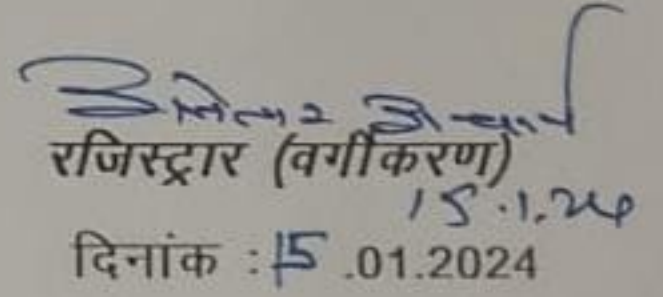 रजिस्ट्रार (वर्गीकरण)
15.1.24
दिनांक : 15 .01.2024